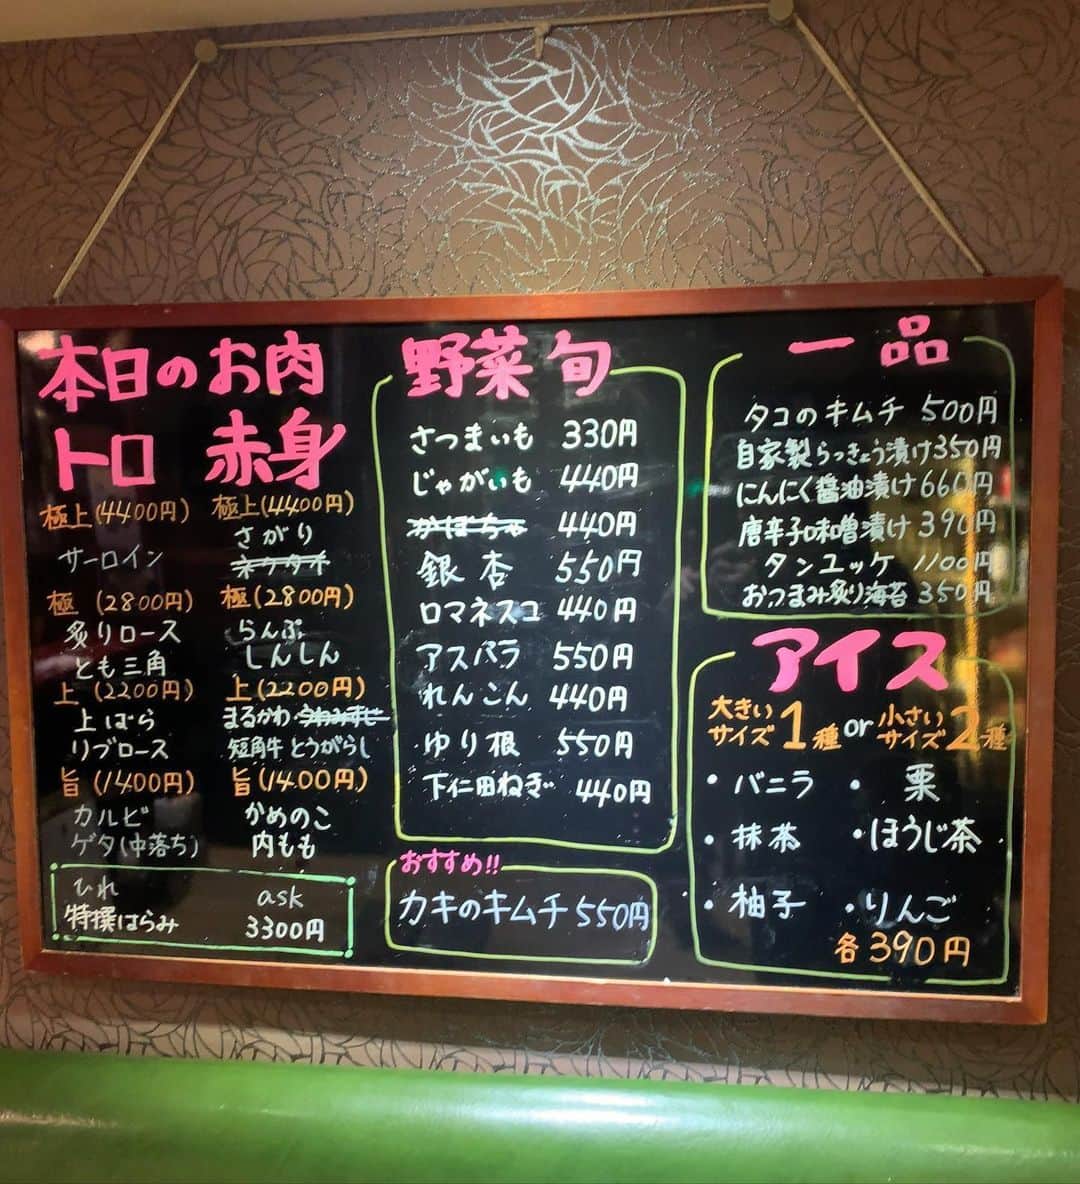 本日のお肉
トロ 赤身
極上(4400円) 極上(4400円)
サーロイン さがり
ネクタイ
極 (2800円) 極(2800円)
炙りロース らんぷ
とも三角 しんしん
上 (2200円) 上(2200円)
上ばら まるかわ・うわみすじ
リブロース 短角牛 とうがらし
旨(1400円) 旨(1400円)
カルビ かめのこ
ゲタ(中落ち) 内もも
ひれ ask
特撰はらみ 3300円
野菜 旬
さつまいも 330円
じゃがいも 440円
かぼちゃ 440円
銀杏 550円
ロマネスコ 440円
アスパラ 550円
れんこん 440円
ゆり根 550円
下仁田ねぎ 440円
おすすめ!!
カキのキムチ 550円
一品
タコのキムチ 500円
自家製らっきょう漬け350円
にんにく醤油漬け660円
唐辛子味噌漬け390円
タンユッケ 1100円
おつまみ炙り海苔 350円
アイス
大きいサイズ1種 or 小さいサイズ2種
・バニラ ・栗
・抹茶 ・ほうじ茶
・柚子 ・りんご
各390円